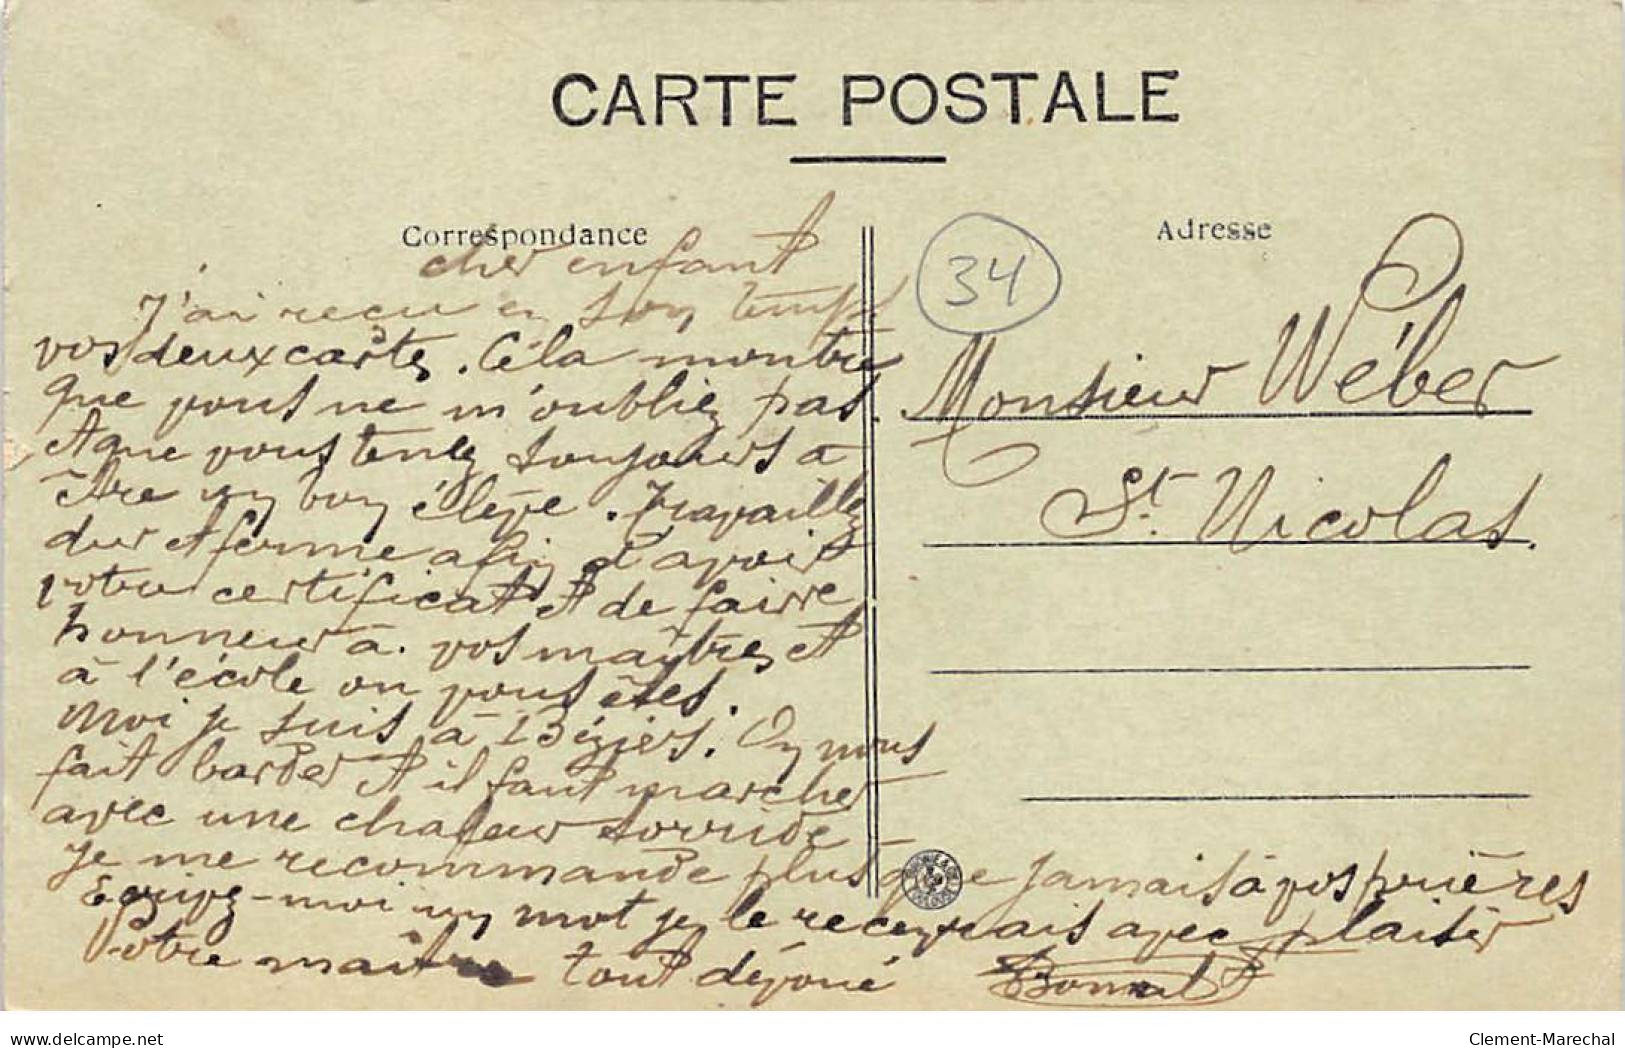 CARTE POSTALE
Correspondance
Adresse
34
cher enfant
J'ai reçu en son temps
vos deux cartes. Céla montre
que vous ne m'oubliez pas.
Et que vous tenez toujours à
être un bon élève. Travaillez
dur et ferme afin d'avoir
votre certificat et de faire
honneur à vos maîtres et
à l'école où vous êtes.
Moi je suis à Béziers. On nous
fait barder et il faut marcher
avec une chaleur torride
Je me recommande plus que jamais à vos prières
Ecrivez-moi un mot je le recevrais avec plaisir
Votre maître tout dévoué
Monsieur Wéber
St Nicolas.
www.delcampe.net
Clement-Marechal